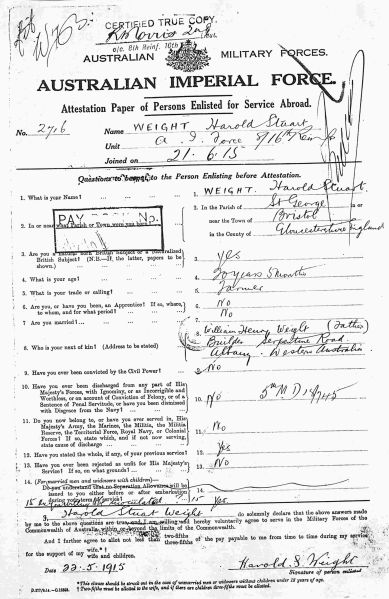 CERTIFIED TRUE COPY.
o/c. 8th Reinf. 16th
AUSTRALIAN MILITARY FORCES.
AUSTRALIAN IMPERIAL FORCE.
Attestation Paper of Persons Enlisted for Service Abroad.
No. 2716 Name WEIGHT Harold Stuart
Unit A. I. Force 8/16th Rein
Joined on 21.6.15
Questions to be put to the Person Enlisting before Attestation.
1. What is your Name? 1. WEIGHT. Harold Stuart.
2. In or near what Parish or Town were you born? 2. In the Parish of St George
near the Town of Bristol
in the County of Gloucestershire England
PAY No.
3. Are you a natural born British Subject or a Naturalized British Subject? (N.B.—If the latter, papers to be shown.) 3. Yes
4. What is your age? 4. 20 years 5 months
5. What is your trade or calling? 5. Farmer
6. Are you, or have you been, an Apprentice? If so, where, to whom, and for what period? 6. No
7. Are you married? 7. No
8. Who is your next of kin? (Address to be stated) 8. William Henry Weight (Father)
Builder Serpentine Road
Albany. Western Australia
9. Have you ever been convicted by the Civil Power? 9. No
10. Have you ever been discharged from any part of His Majesty's Forces, with Ignominy, or as Incorrigible and Worthless, or on account of Conviction of Felony, or of a Sentence of Penal Servitude, or have you been dismissed with Disgrace from the Navy? 10. No
11. Do you now belong to, or have you ever served in, His Majesty's Army, the Marines, the Militia, the Militia Reserve, the Territorial Force, Royal Navy, or Colonial Forces? If so, state which, and if not now serving, state cause of discharge 11. No
12. Have you stated the whole, if any, of your previous service? 12. Yes
13. Have you ever been rejected as unfit for His Majesty's Service? If so, on what grounds? 13. No
14. (For married men and widowers with children)
Do you understand that no Separation Allowance will be issued to you either before or after embarkation during your term of service? 14.
15 15 Yes
I, Harold Stuart Weight do solemnly declare that the above answers made by me to the above questions are true, and I am willing and hereby voluntarily agree to serve in the Military Forces of the Commonwealth of Australia within or beyond the limits of the Commonwealth.
And I further agree to allot not less than two-fifths three-fifths of the pay payable to me from time to time during my service for the support of my wife.* wife and children.
Date 22.5.1915 Harold S. Weight
Signature of person enlisted
*This clause should be struck out in the case of unmarried men or widowers without children under 18 years of age.